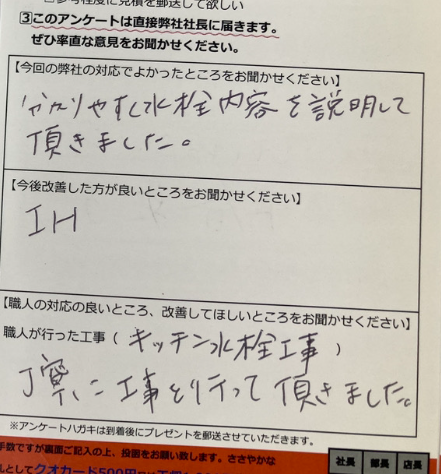 参考程度に見積を郵送して欲しい
③このアンケートは直接弊社社長に届きます。
ぜひ率直な意見をお聞かせください。
【今回の弊社の対応でよかったところをお聞かせください】
わかりやすく水栓内容を説明して
頂きました。
【今後改善した方が良いところをお聞かせください】
IH
【職人の対応の良いところ、改善してほしいところをお聞かせください】
職人が行った工事(キッチン水栓工事)
丁寧に工事を行って頂きました。
※アンケートハガキは到着後にプレゼントを郵送させていただきます。
手数ですが裏面ご記入の上、投函をお願い致します。ささやかな
としてクオカード500円
社長 部長 店長